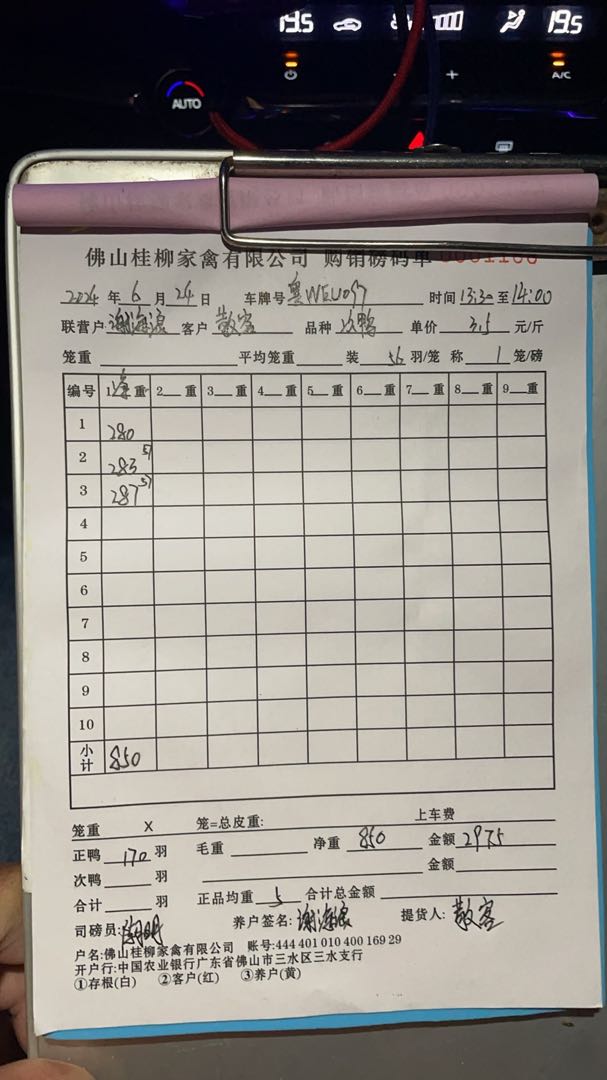 19.5 19.5
AUTO A/C
佛山桂柳家禽有限公司 购销磅码单
2024 年 6 月 24 日 车牌号 时间 13:30 至 14:00
联营户 谢海浪 客户 散客 品种 次鸭 单价 3.5 元/斤
笼重 平均笼重 装 56 羽/笼 称 1 笼/磅
编号 1净重 2 重 3 重 4 重 5 重 6 重 7 重 8 重 9 重
1 280
2 283 57
3 287 57
4
5
6
7
8
9
10
小计 850
笼重 X 笼=总皮重: 上车费
正鸭 170 羽 毛重 净重 850 金额 2975
次鸭 羽 金额
合计 羽 正品均重 5 合计总金额
司磅员: 养户签名: 谢海浪 提货人: 散客
户名:佛山桂柳家禽有限公司 账号:444 401 010 400 169 29
开户行:中国农业银行广东省佛山市三水区三水支行
①存根(白) ②客户(红) ③养户(黄)